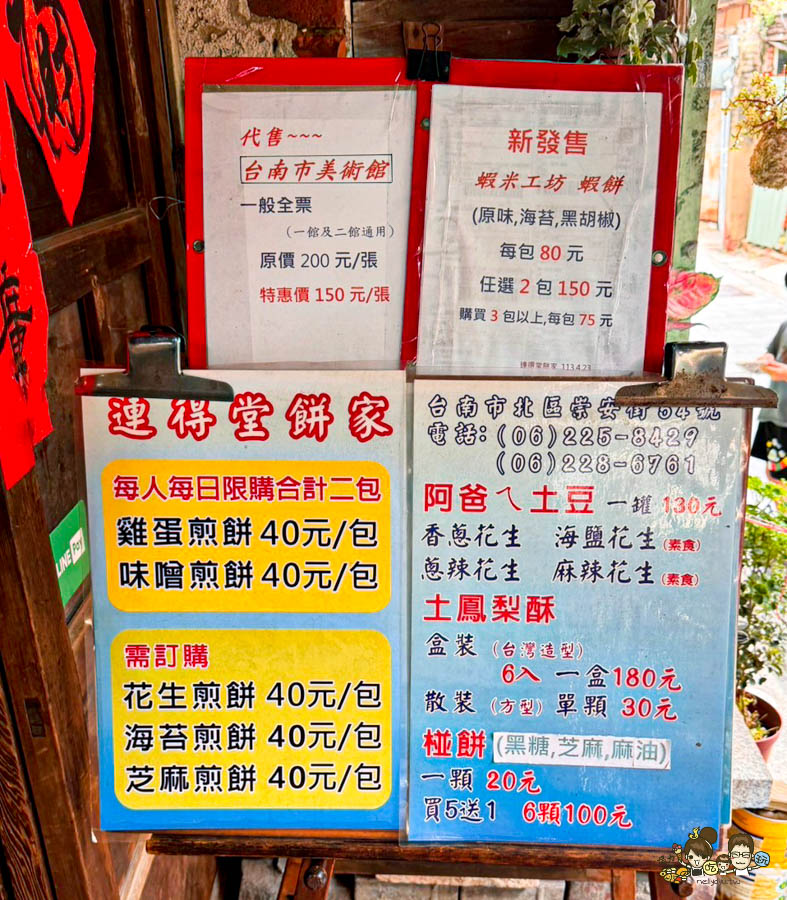 代售~~~
台南市美術館
一般全票
(一館及二館通用)
原價 200 元/張
特惠價 150 元/張
新發售
蝦米工坊 蝦餅
(原味,海苔,黑胡椒)
每包 80 元
任選 2 包 150 元
購買 3 包以上,每包 75 元
連得堂餅家 113.4.23
連得堂餅家
每人每日限購合計二包
雞蛋煎餅 40元/包
味噌煎餅 40元/包
需訂購
花生煎餅 40元/包
海苔煎餅 40元/包
芝麻煎餅 40元/包
台南市北區崇安街54號
電話:(06)225-8429
(06)228-6761
阿爸ㄟ土豆 一罐 130元
香蔥花生 海鹽花生(素食)
蔥辣花生 麻辣花生(素食)
土鳳梨酥
盒裝 (台灣造型)
6入 一盒180元
散裝 (方型) 單顆 30元
椪餅(黑糖,芝麻,麻油)
一顆 20元
買5送1 6顆100元
LINE Pay